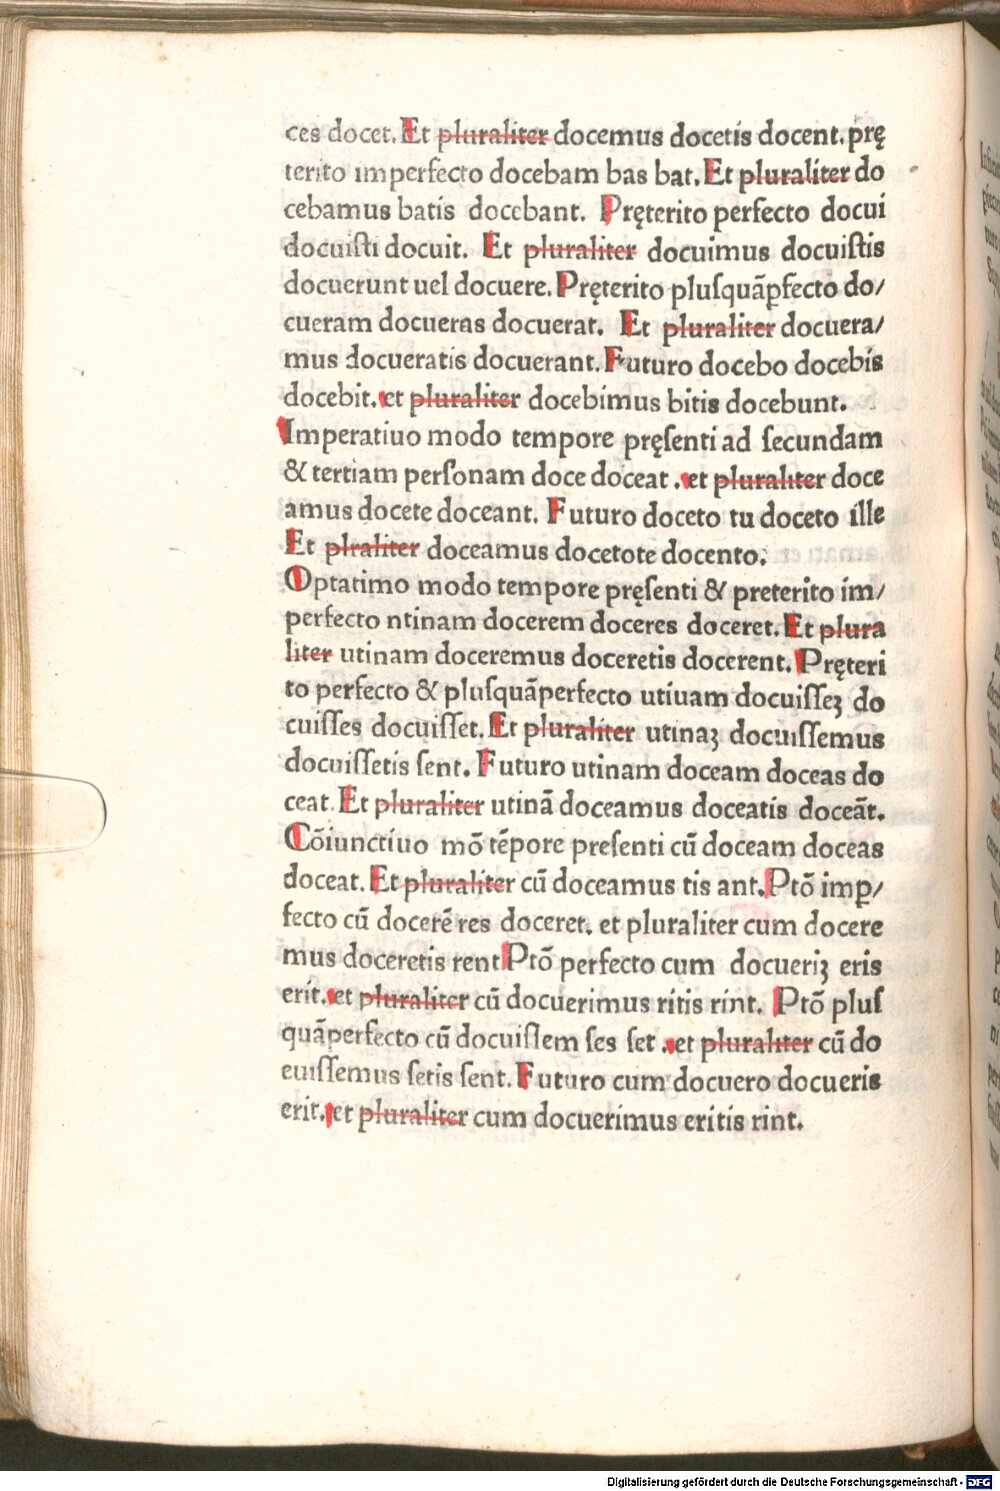 ces docet. Et pluraliter docemus docetis docent. prę
terito imperfecto docebam bas bat. Et pluraliter do
cebamus batis docebant. Pręterito perfecto docui
docuiſti docuit. Et pluraliter docuimus docuiſtis
docuerunt uel docuere. Pręterito pluſquāꝑfecto do/
cueram docueras docuerat. Et pluraliter docuera/
mus docueratis docuerant. Futuro docebo docebis
docebit. et pluraliter docebimus bitis docebunt.
Imperatiuo modo tempore pręſenti ad ſecundam
& tertiam perſonam doce doceat . et pluraliter doce
amus docete doceant. Futuro doceto tu doceto ille
Et plraliter doceamus docetote docento.
Optatimo modo tempore pręſenti & preterito im/
perfecto ntinam docerem doceres doceret. Et plura
liter utinam doceremus doceretis docerent. Pręteri
to perfecto & pluſquāperfecto utiuam docuiſſeꝫ do
cuiſſes docuiſſet. Et pluraliter utinaꝫ docuiſſemus
docuiſſetis ſent. Futuro utinam doceam doceas do
ceat. Et pluraliter utinā doceamus doceatis doceāt.
Cōiunctiuo mō tēpore preſenti cū doceam doceas
doceat. Et pluraliter cū doceamus tis ant. Ptō imꝑ/
fecto cū docerē res doceret. et pluraliter cum docere
mus doceretis rent Ptō perfecto cum docueriꝫ eris
erit. et pluraliter cū docuerimus ritis rint. Ptō pluſ
quāperfecto cū docuiſſem ſes ſet . et pluraliter cū do
euiſſemus ſetis ſent. Futuro cum docuero docueris
erit. et pluraliter cum docuerimus eritis rint.
Digitalisierung gefördert durch die Deutsche Forschungsgemeinschaft - DFG